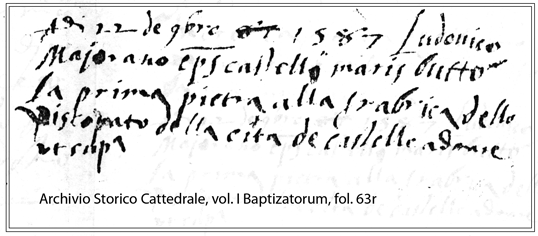 Adi 22 de 9bro 1587 Ludovico
Majorano eps castelli maris butto
la prima pietra alla frabrica dello
Piscopato della cita de castello ad mare
ut supa
Archivio Storico Cattedrale, vol. I Baptizatorum, fol. 63r